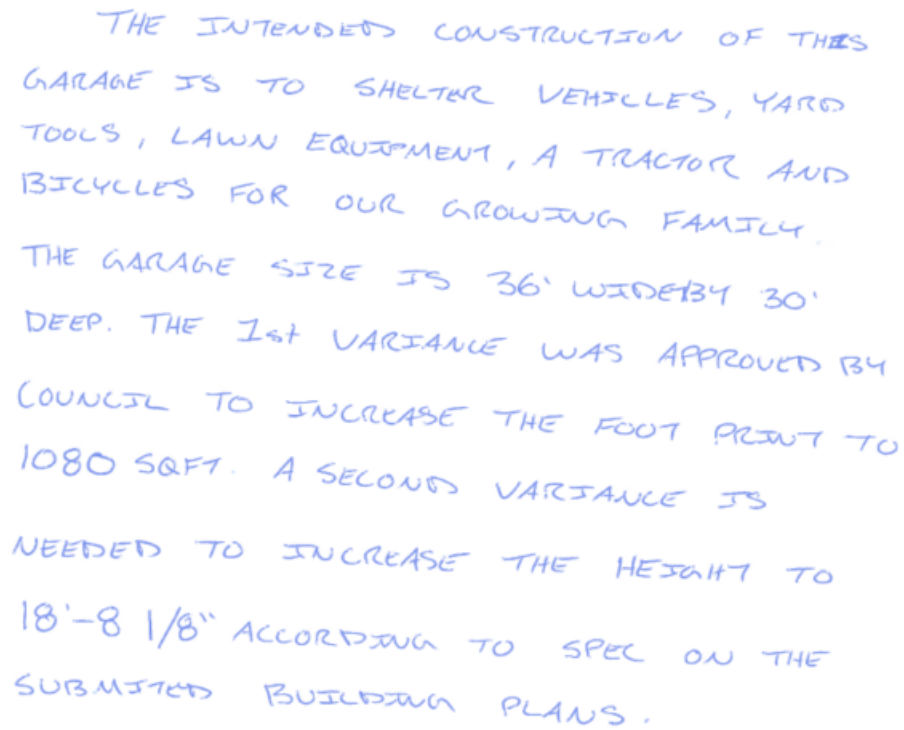 THE INTENDED CONSTRUCTION OF THIS
GARAGE IS TO SHELTER VEHICLES, YARD
TOOLS, LAWN EQUIPMENT, A TRACTOR AND
BICYCLES FOR OUR GROWING FAMILY.
THE GARAGE SIZE IS 36' WIDE BY 30'
DEEP. THE 1st VARIANCE WAS APPROVED BY
COUNCIL TO INCREASE THE FOOT PRINT TO
1080 SQFT. A SECOND VARIANCE IS
NEEDED TO INCREASE THE HEIGHT TO
18'-8 1/8" ACCORDING TO SPEC ON THE
SUBMITED BUILDING PLANS.